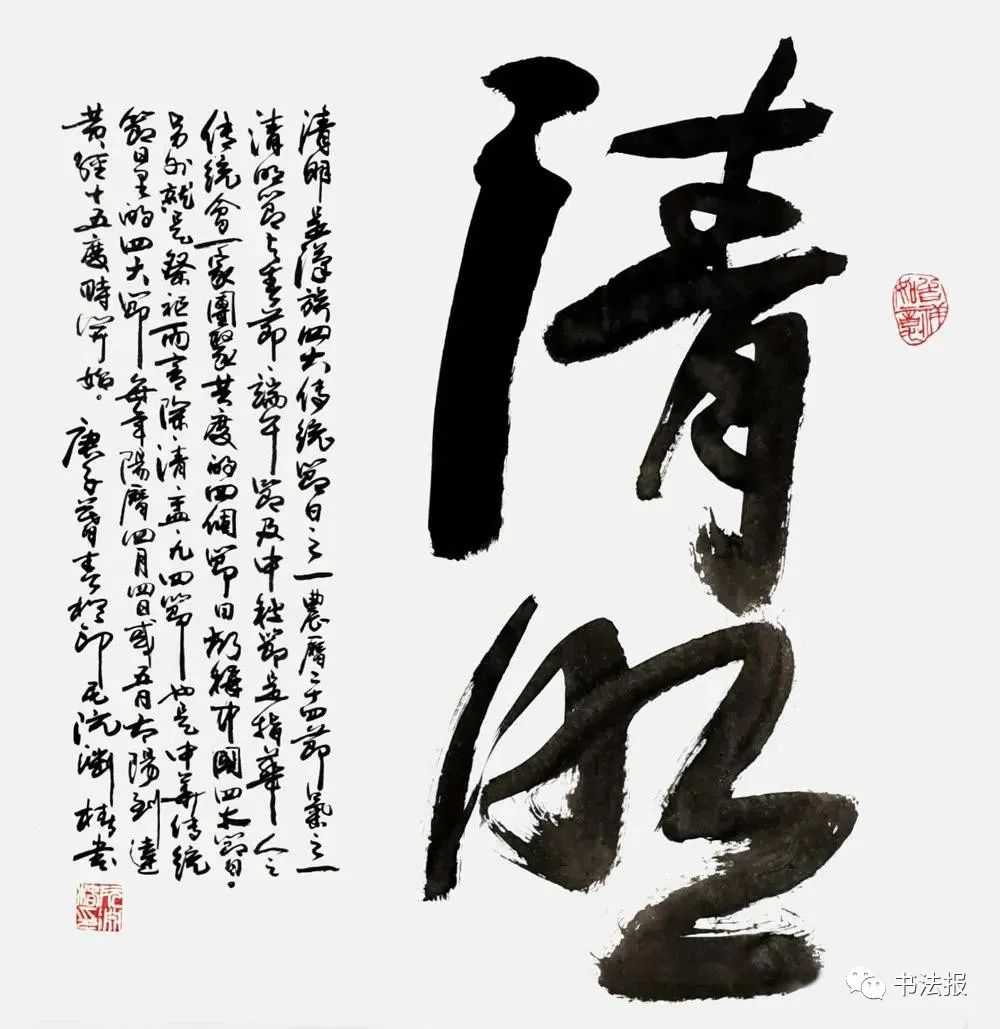 清明
清明是漢族四大傳統節日之一農曆二十四節氣之一
清明節与春節、端午節及中秋節是指華人之
傳統會一家團聚共度的四個節日都稱中國四大節日。
另外就是祭祀而言除、清、盂、九四節也是中華傳統
節日里的四大節每年陽曆四月四日或五日太陽到達
黄經十五度時開始。庚子暮春 印 阮 椿書
吉祥如意
书法报